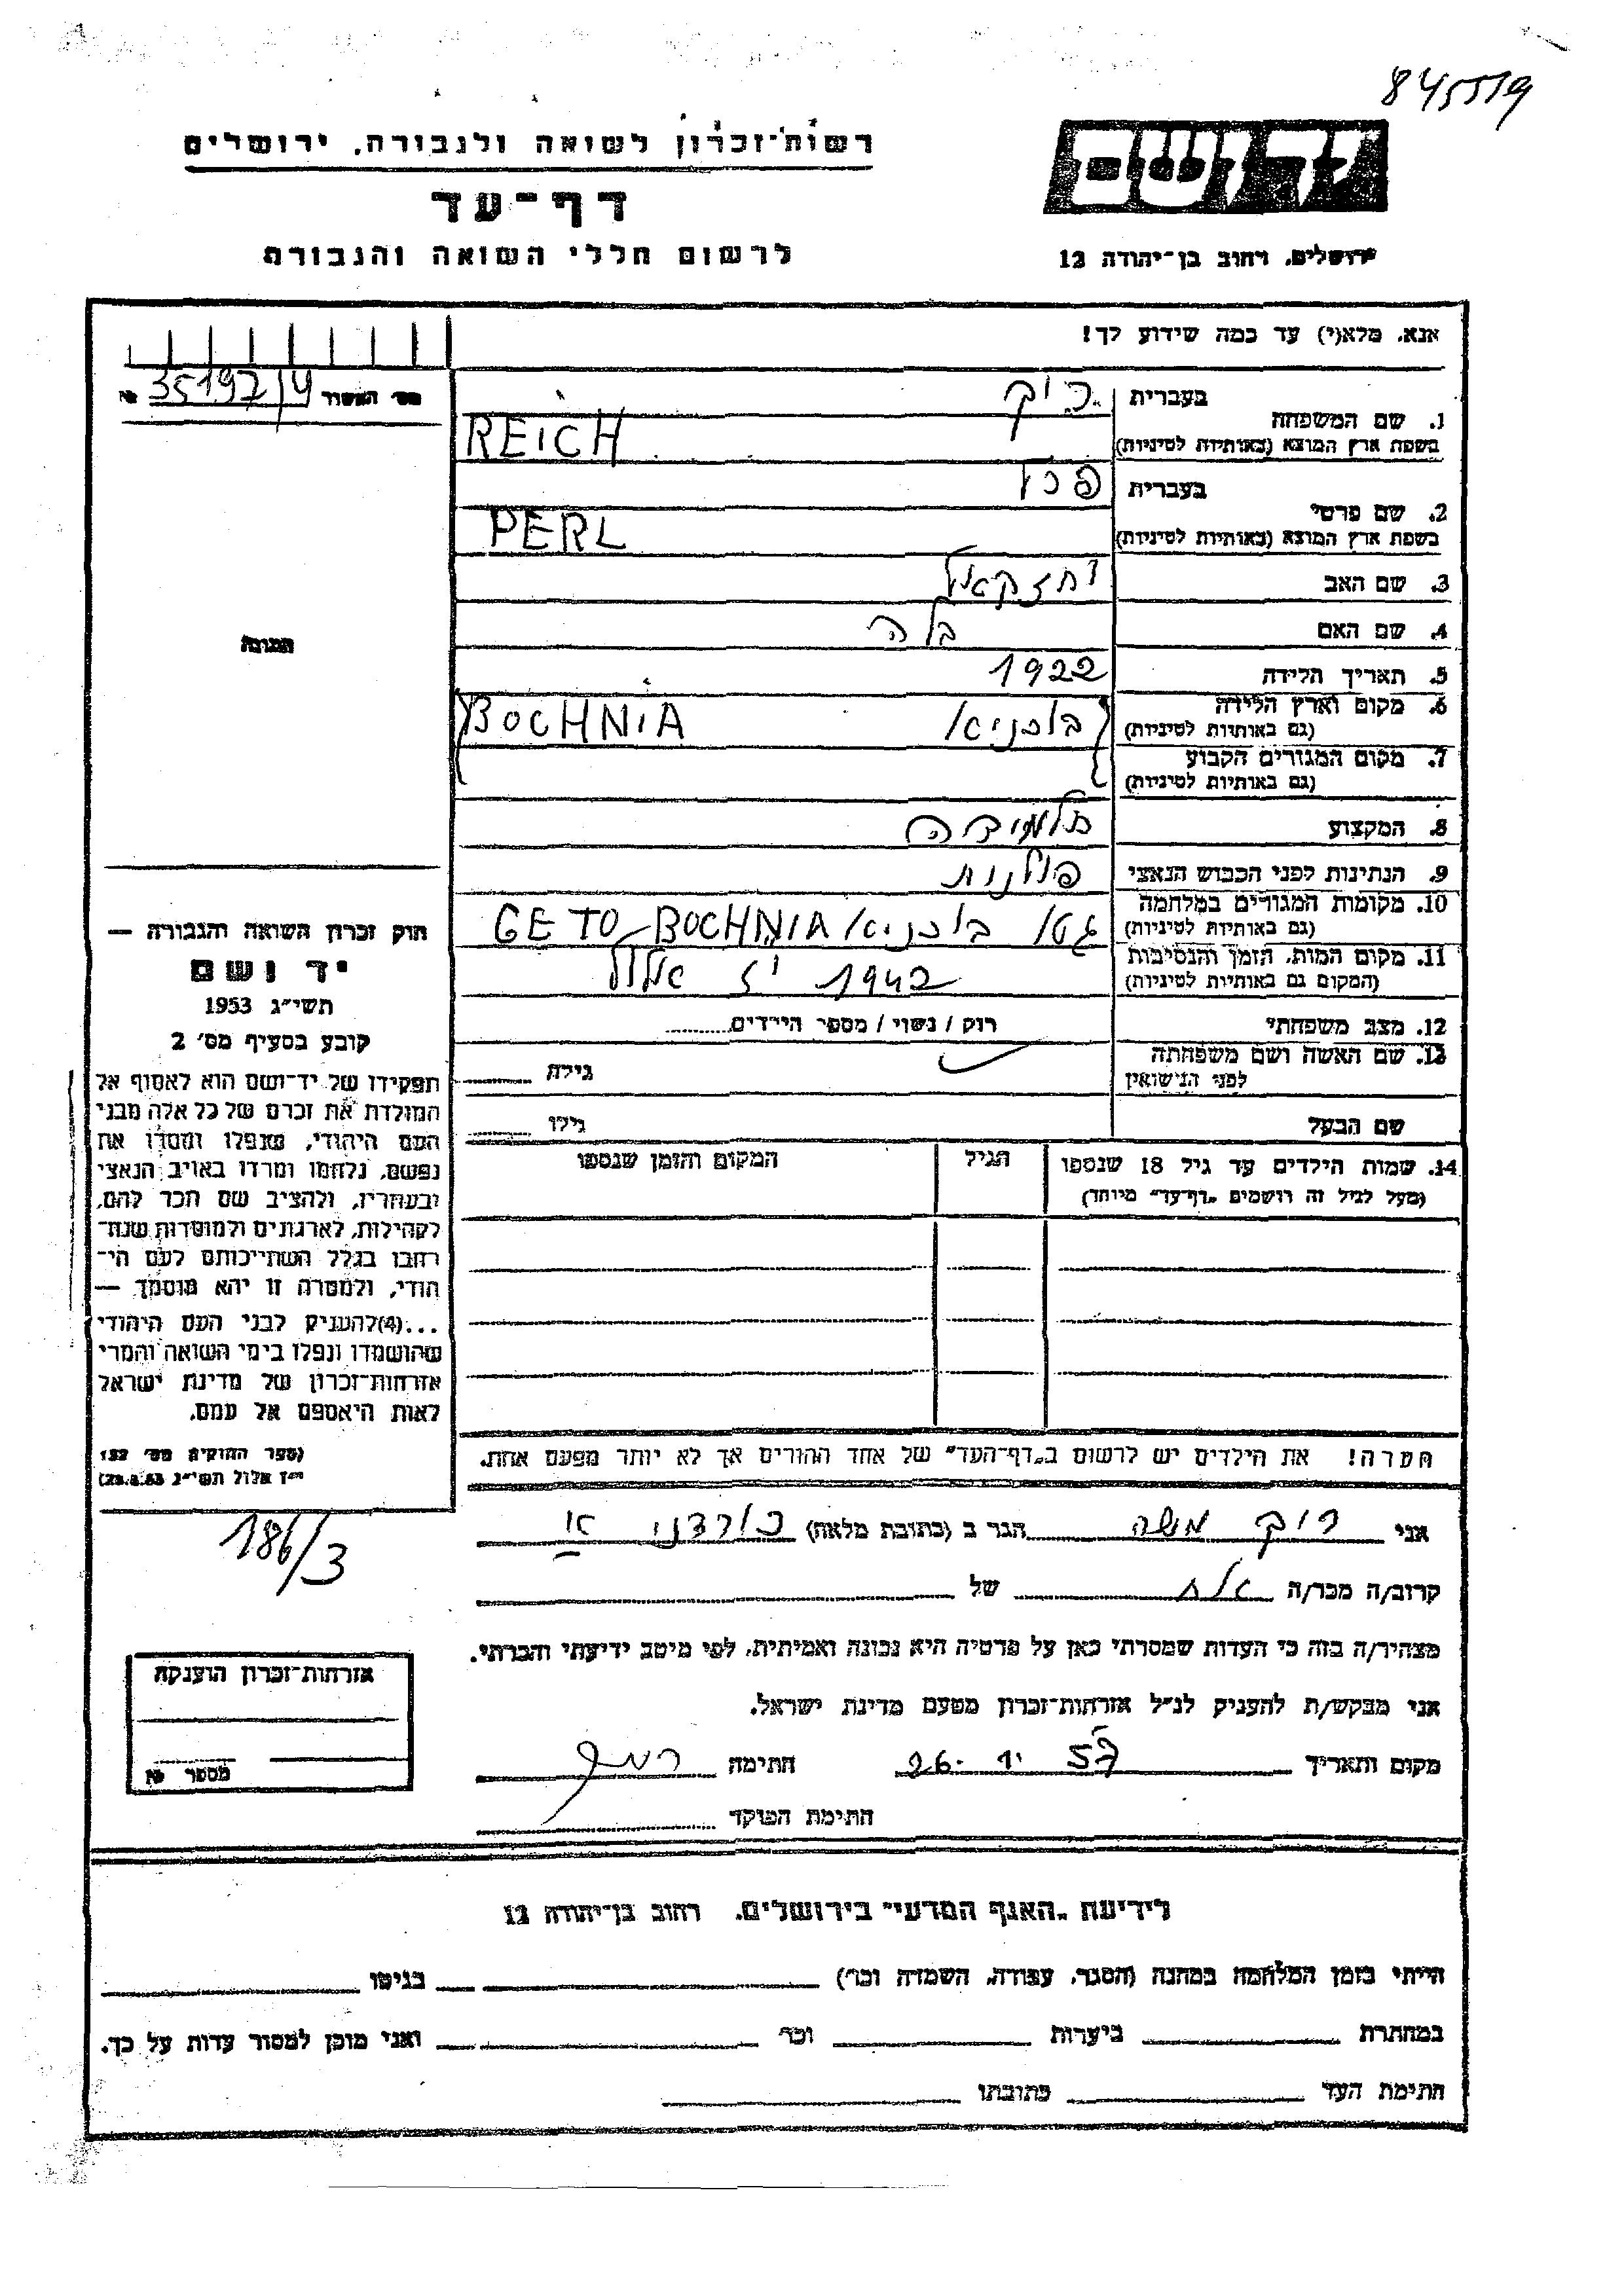 845519
רשות־זכרון לשואה ולגבורה, ירושלים
דף־עד
לרשום חללי השואה והגבורה
יד ושם
ירושלים, רחוב בן־יהודה 12
אנא, מלא(י) עד כמה שידוע לך!
מס׳ האשור 35197/4 №
1. שם המשפחה בעברית רייך
בשפת ארץ המוצא (באותיות לטיניות) REICH
2. שם פרטי בעברית פרל
בשפת ארץ המוצא (באותיות לטיניות) PERL
3. שם האב יחזקאל
4. שם האם בלה
5. תאריך הלידה 1922
6. מקום וארץ הלידה
(גם באותיות לטיניות) בוכניא BOCHNIA
7. מקום המגורים הקבוע
(גם באותיות לטיניות)
8. המקצוע תלמידה
9. הנתינות לפני הכבוש הנאצי פולנית
10. מקומות המגורים במלחמה
(גם באותיות לטיניות) גטו בוכניא GETO-BOCHNIA
11. מקום המות, הזמן והנסיבות
(המקום גם באותיות לטיניות) 1942 יז אלול
12. מצב משפחתי רוק / נשוי / מספר הילדים
13. שם האשה ושם משפחתה
לפני הנישואין גילה
שם הבעל גילו
14. שמות הילדים עד גיל 18 שנספו הגיל המקום והזמן שנספו
(מעל לגיל זה רושמים „דף־עד״ מיוחד)
הערה! את הילדים יש לרשום ב„דף־העד״ של אחד ההורים אך לא יותר מפעם אחת.
התמונה
חוק זכרון השואה והגבורה —
יד ושם
תשי״ג 1953
קובע בסעיף מס׳ 2
תפקידו של יד־ושם הוא לאסוף אל
המולדת את זכרם של כל אלה מבני
העם היהודי, שנפלו ומסרו את
נפשם, נלחמו ומרדו באויב הנאצי
ובעוזריו, ולהציב שם וזכר להם,
לקהילות, לארגונים ולמוסדות שנח־
רבו בגלל השתייכותם לעם הי־
הודי, ולמטרה זו יהא מוסמך —
...(4)להעניק לבני העם היהודי
שהושמדו ונפלו בימי השואה והמרי
אזרחות־זכרון של מדינת ישראל
לאות היאספם אל עמם.
(ספר החוקים מס׳ 132
י״ז אלול תשי״ג 28.8.53)
186/3
אני רייך משה הגר ב (כתובת מלאה)
קרוב/ה מכר/ה אח של
מצהיר/ה בזה כי העדות שמסרתי כאן על פרטיה היא נכונה ואמיתית, לפי מיטב ידיעתי והכרתי.
אני מבקש/ת להעניק לנ״ל אזרחות־זכרון מטעם מדינת ישראל.
מקום ותאריך 26. חתימה
חתימת הפוקד
אזרחות־זכרון הוענקה
מספר №
לידיעת „האגף המדעי״ בירושלים, רחוב בן־יהודה 12
הייתי בזמן המלחמה במחנה (הסגר, עבודה, השמדה וכו׳) בגיטו
במחתרת ביערות וכו׳ ואני מוכן למסור עדות על כך.
חתימת העד כתובתו